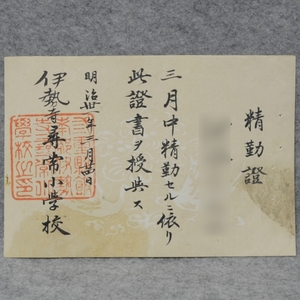 精勤證
三月中精勤セルニ依リ
此證書ヲ授与ス
明治卅年三月廿日
伊勢寺尋常小学校